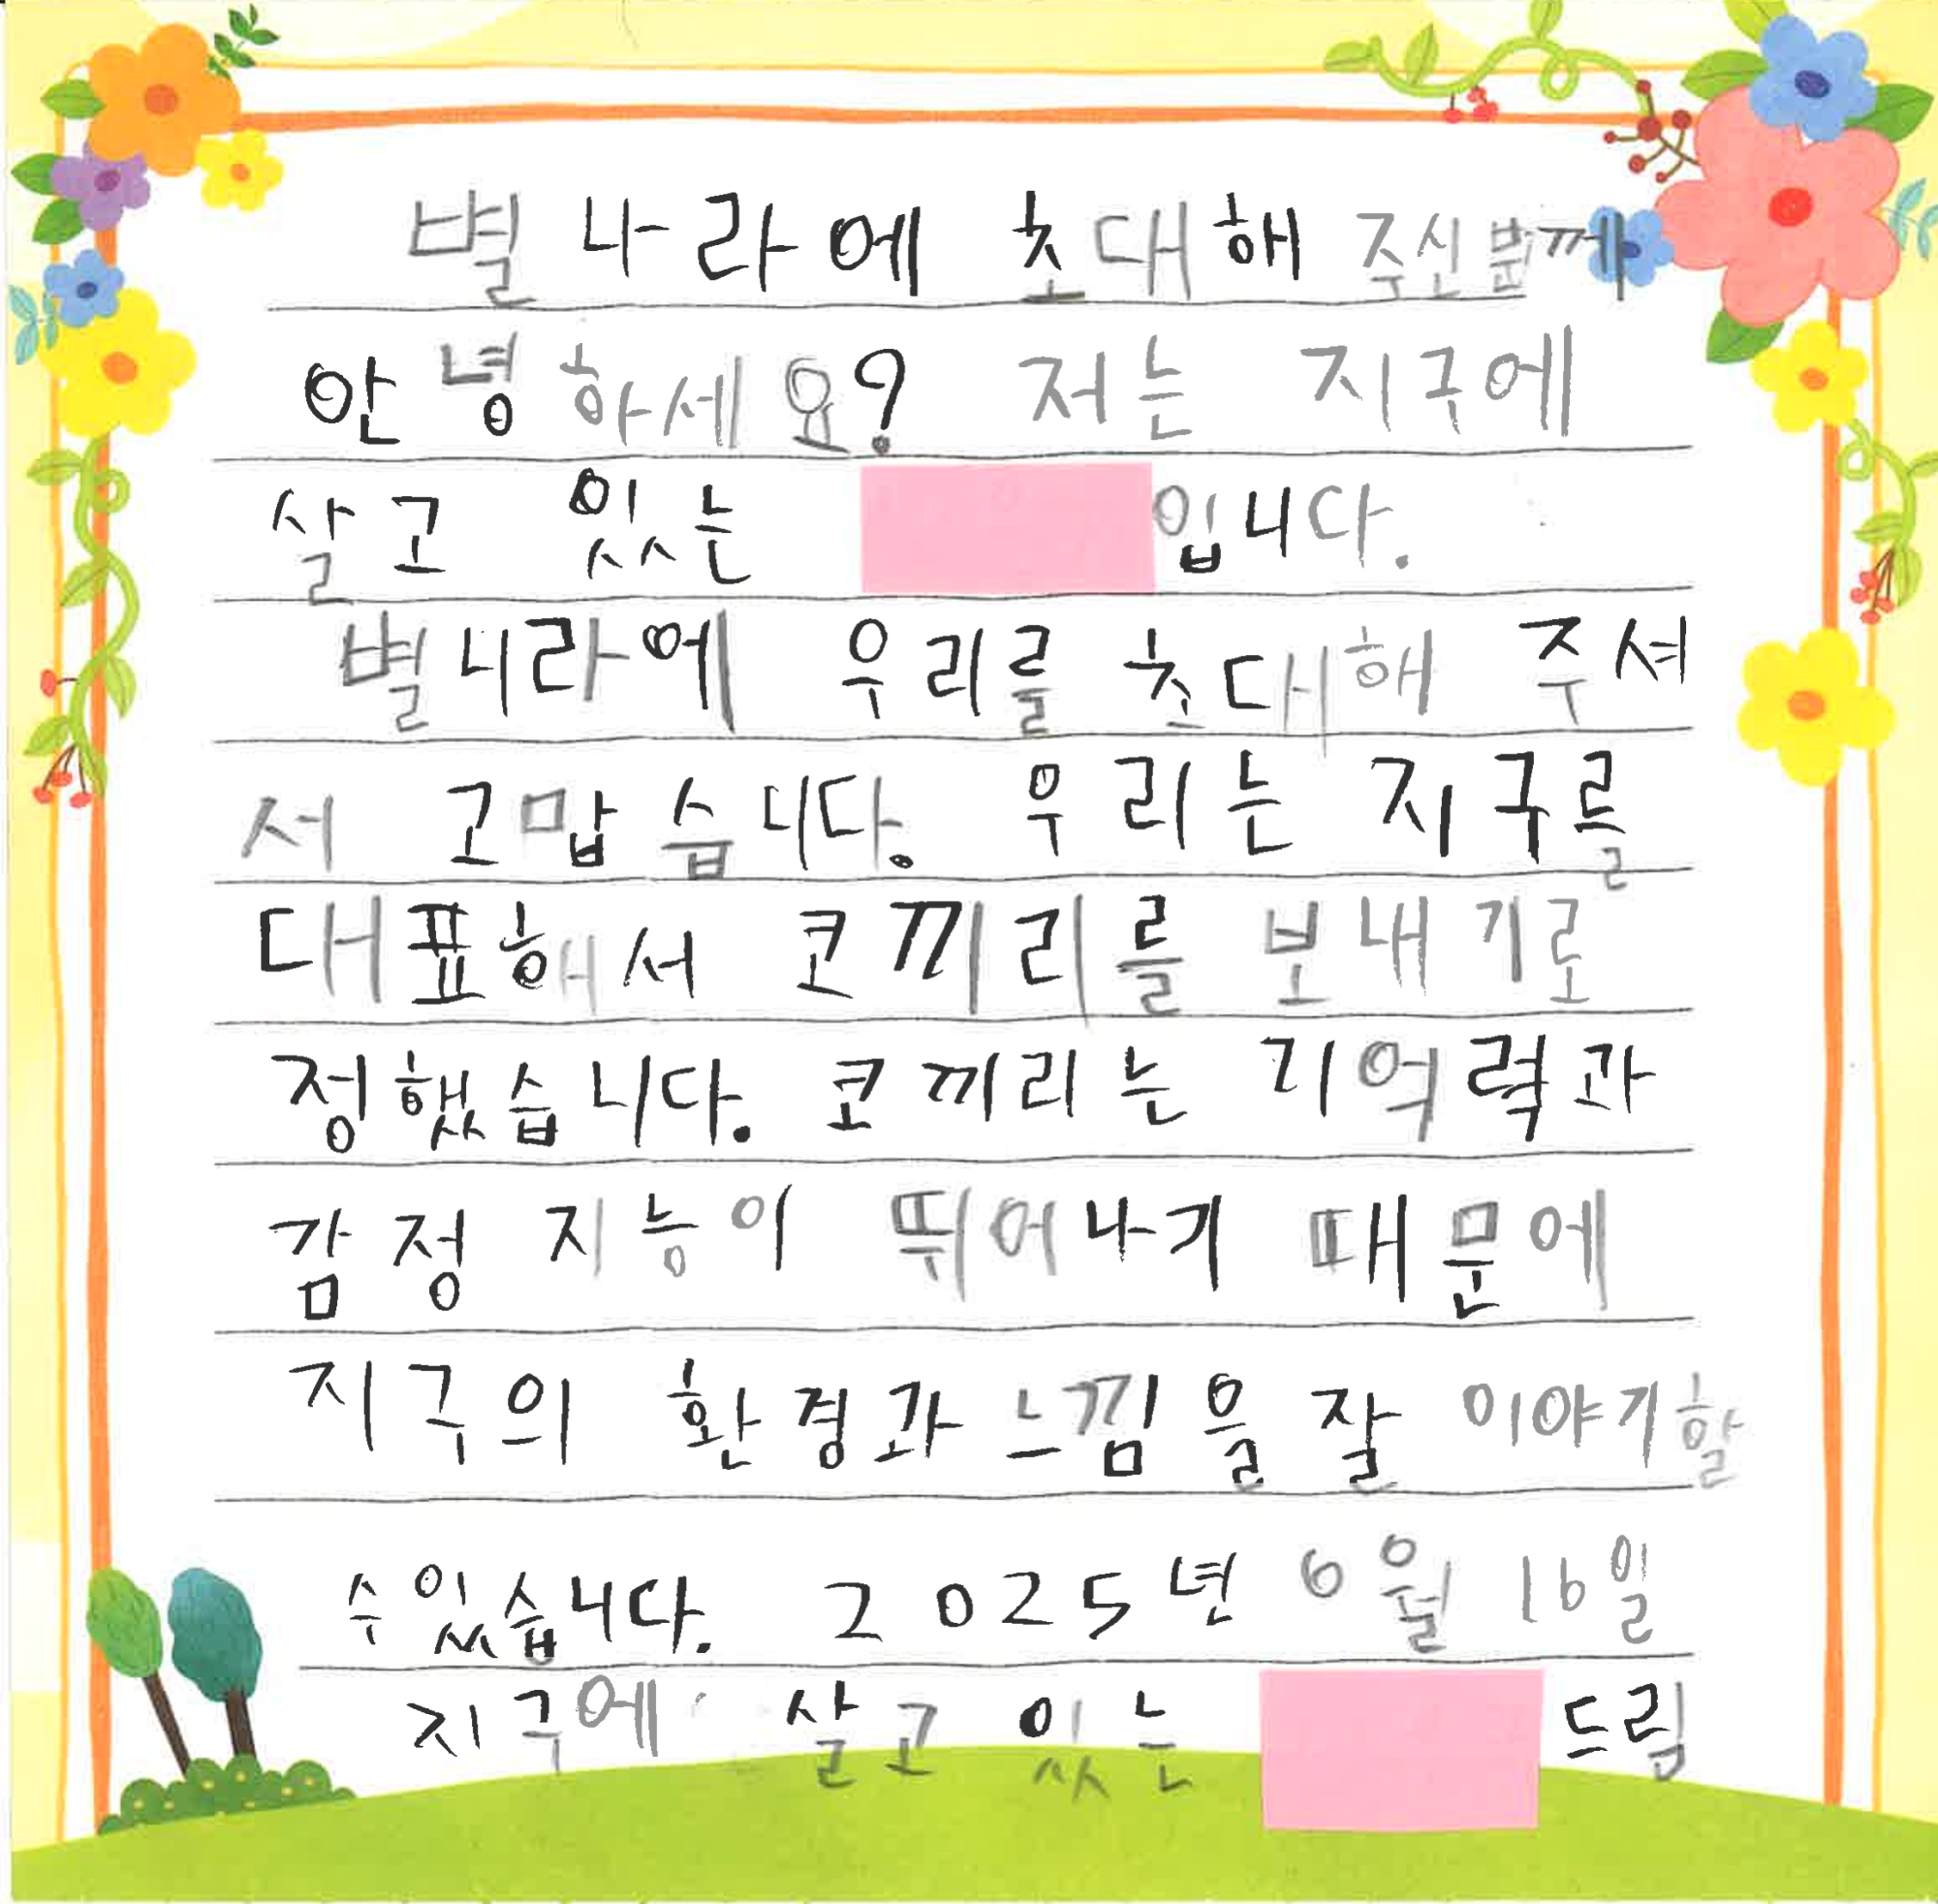 별나라에 초대해 주신분께
안녕하세요? 저는 지구에
살고 있는 입니다.
별니라에 우리를 초대해 주셔
서 고맙습니다. 우리는 지구를
대표해서 코끼리를 보내기로
정했습니다. 코끼리는 기억력과
감정 지능이 뛰어나기 때문에
지구의 환경과 느낌을 잘 이야기할
수있습니다. 2025년 6월 16일
지구에 살고 있는 드림